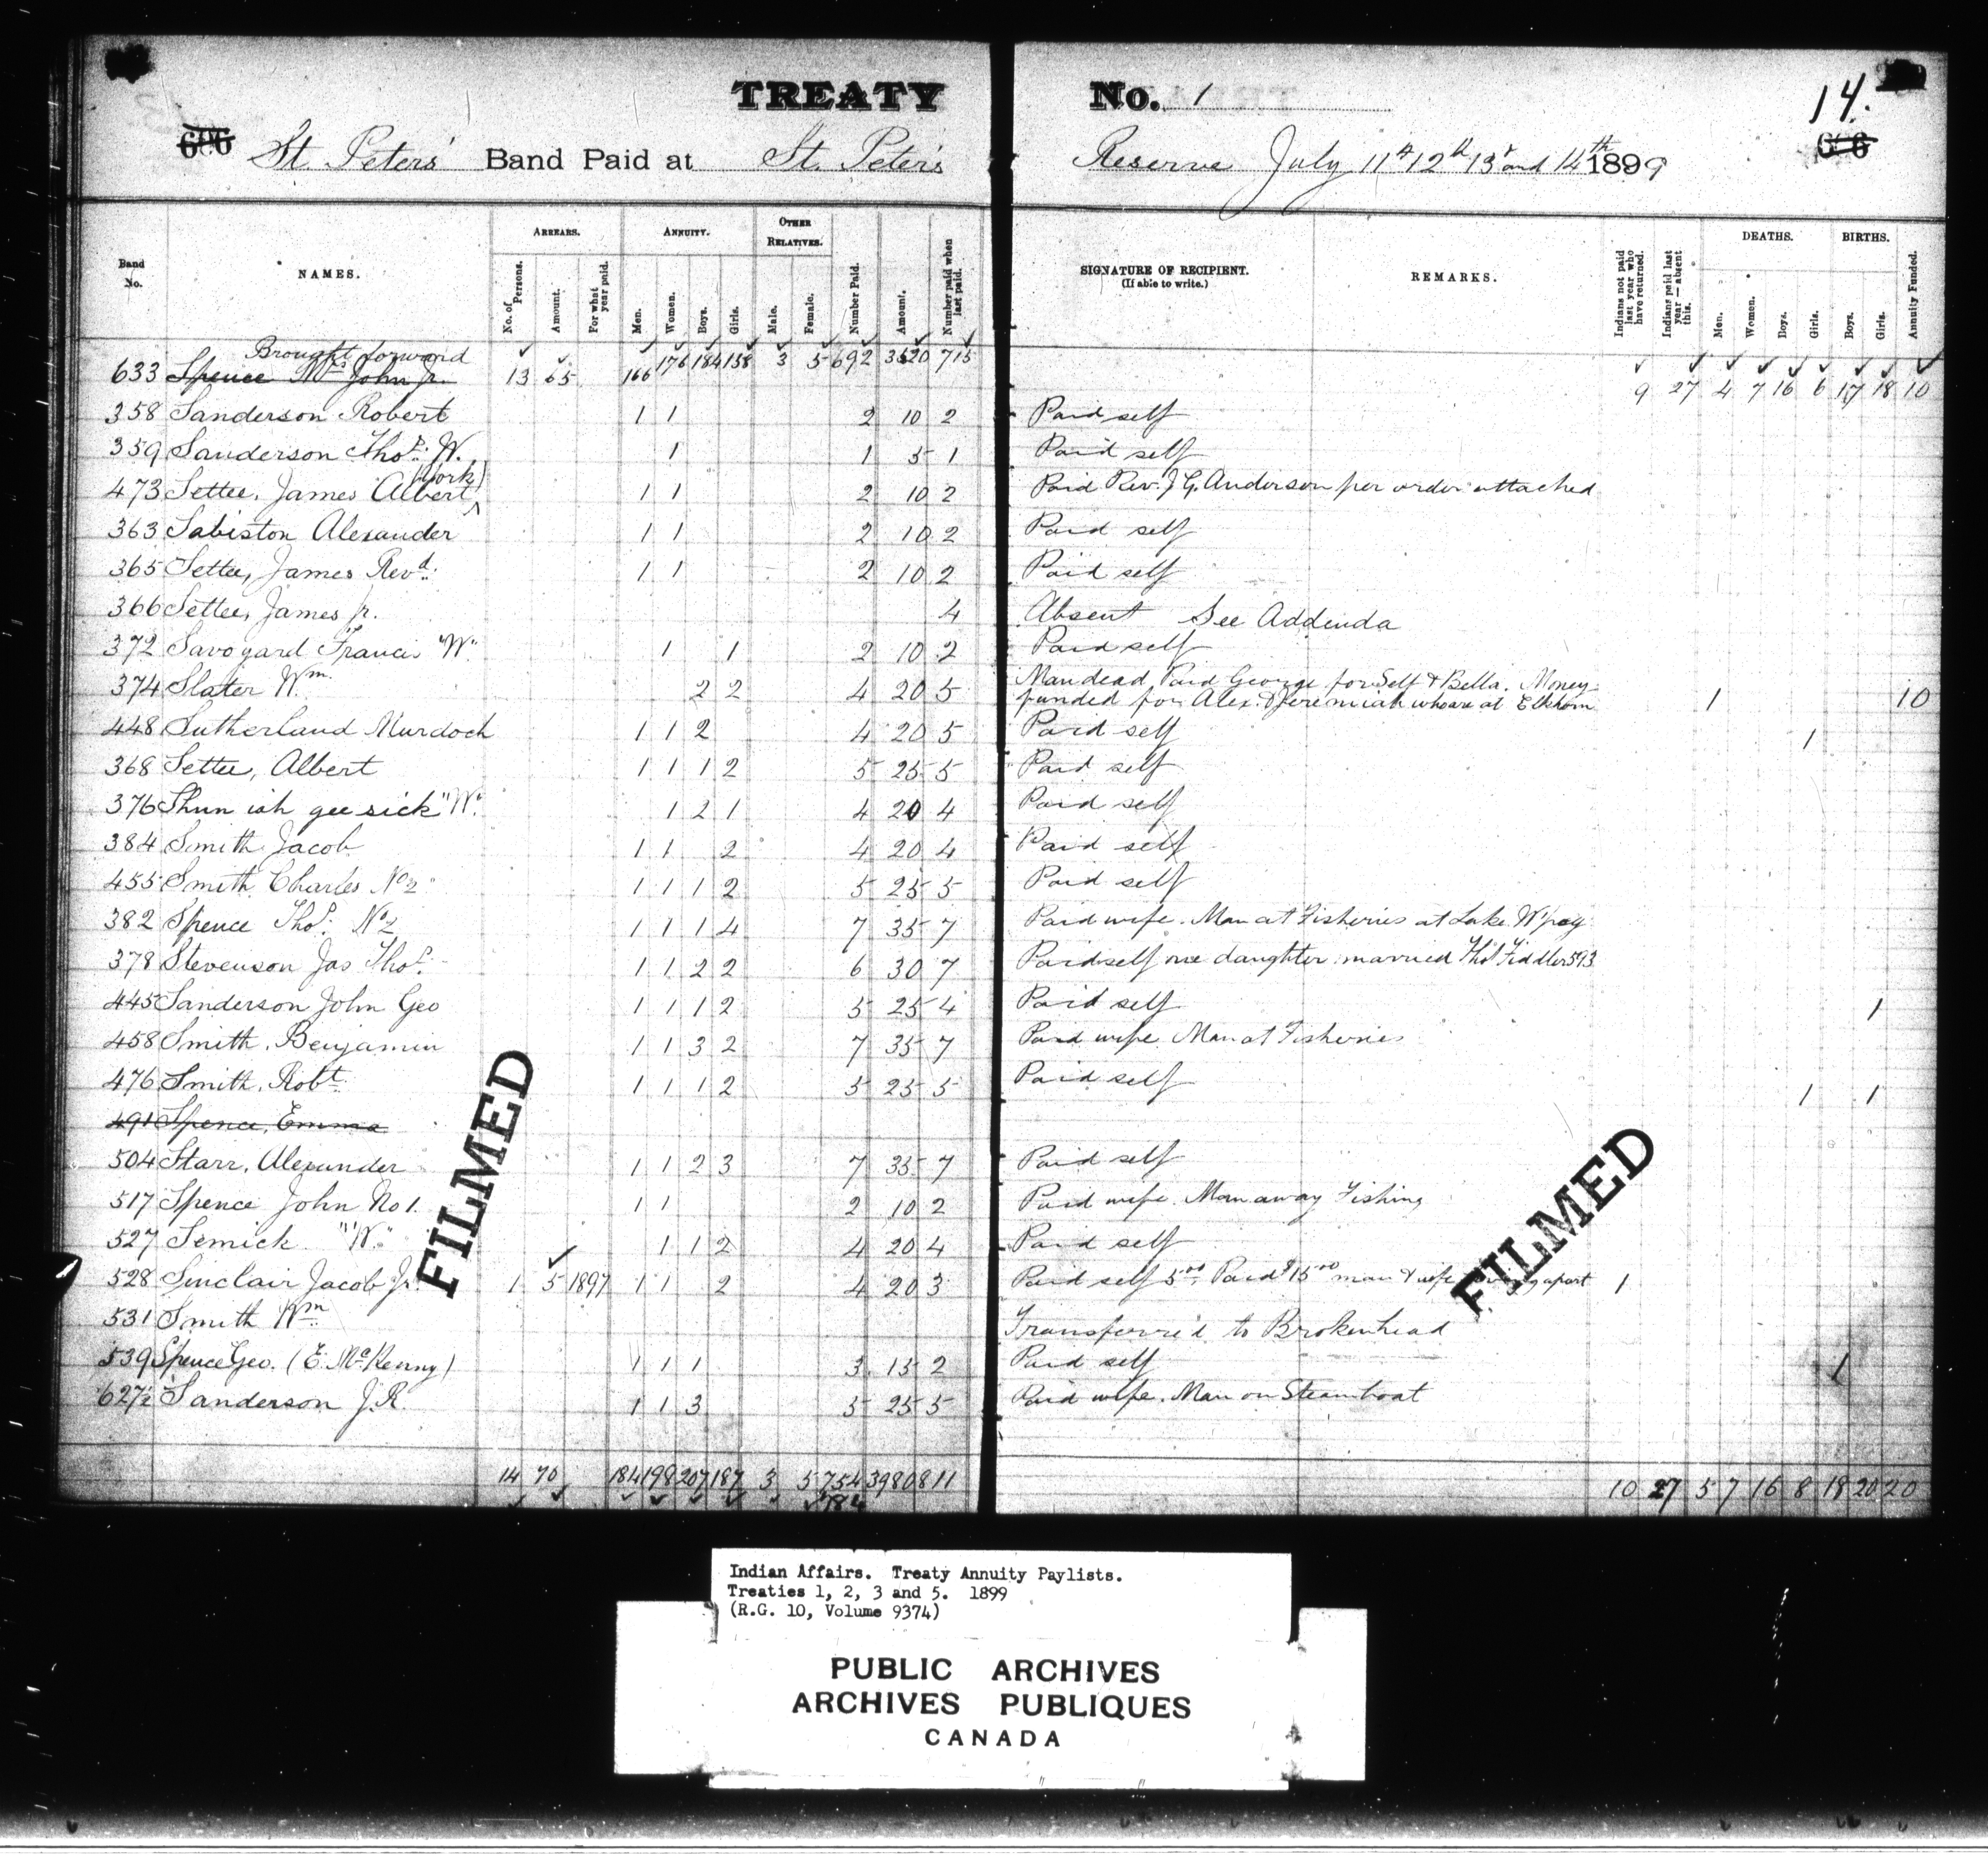 TREATY No. 1
14.
606 St. Peters' Band Paid at St. Peter's Reserve July 11th 12th 13th and 14th 1899
Band No. NAMES. ARREARS. No. of Persons. Amount. For what year paid. ANNUITY. Men. Women. Boys. Girls. OTHER RELATIVES. Male. Female. Number Paid. Amount. Number paid when last paid. SIGNATURE OF RECIPIENT. (If able to write.) REMARKS. Indians not paid last year who have returned. Indians paid last year — absent this. DEATHS. Men. Women. Boys. Girls. BIRTHS. Boys. Girls. Annuity Funded.
Brought forward 13 65 166 176 184 158 3 5 692 3520 715 9 27 4 7 16 6 17 18 10
633 Spence Mrs John Jr.
358 Sanderson Robert 1 1 2 10 2 Paid self
359 Sanderson Thos. W. 1 1 5 1 Paid self
473 Settee, James Albert (York) 1 1 2 10 2 Paid Rev. J G. Anderson per order attached
363 Sabiston Alexander 1 1 2 10 2 Paid self
365 Settee, James Revd. 1 1 2 10 2 Paid self
366 Settee, James jr. 4 Absent See Addenda
372 Savoyard Francis "W" 1 1 2 10 2 Paid self
374 Slater Wm. 2 2 4 20 5 Man dead, Paid George for Self & Bella. Money funded for Alex. & Jeremiah who are at Elkhorn 1 10
448 Sutherland Murdoch 1 1 2 4 20 5 Paid self 1
368 Settee, Albert 1 1 1 2 5 25 5 Paid self
376 Shun ish gee sick "W" 1 2 1 4 20 4 Paid self
384 Smith Jacob 1 1 2 4 20 4 Paid self
455 Smith Charles No 2 1 1 1 2 5 25 5 Paid self
382 Spence Thos. No 2 1 1 1 4 7 35 7 Paid wife. Man at Fisheries at Lake W'peg
378 Stevenson Jas Thos. 1 1 2 2 6 30 7 Paid self one daughter married Thos Fiddler 593
445 Sanderson John Geo 1 1 1 2 5 25 4 Paid self 1
458 Smith, Benjamin 1 1 3 2 7 35 7 Paid wife Man at Fisheries
476 Smith, Robt. 1 1 1 2 5 25 5 Paid self 1 1
491 Spence, Emma
504 Starr, Alexander 1 1 2 3 7 35 7 Paid self
517 Spence John No 1. 1 1 2 10 2 Paid wife. Man away Fishing
527 Semick "W" 1 1 2 4 20 4 Paid self
528 Sinclair Jacob Jr. 1 5 1897 1 1 2 4 20 3 Paid self 5.00 Paid $15.00 man & wife apart 1
531 Smith Wm. Transferre'd to Brokenhead
539 Spence Geo. (E. McKenny) 1 1 1 3 15 2 Paid self 1
627½ Sanderson J.R. 1 1 3 5 25 5 Paid wife. Man on Steamboat
14 70 184 198 207 187 3 5 754 3980 811 10 27 5 7 16 8 18 20 20
784
FILMED
FILMED
Indian Affairs. Treaty Annuity Paylists.
Treaties 1, 2, 3 and 5. 1899
(R.G. 10, Volume 9374)
PUBLIC ARCHIVES
ARCHIVES PUBLIQUES
CANADA